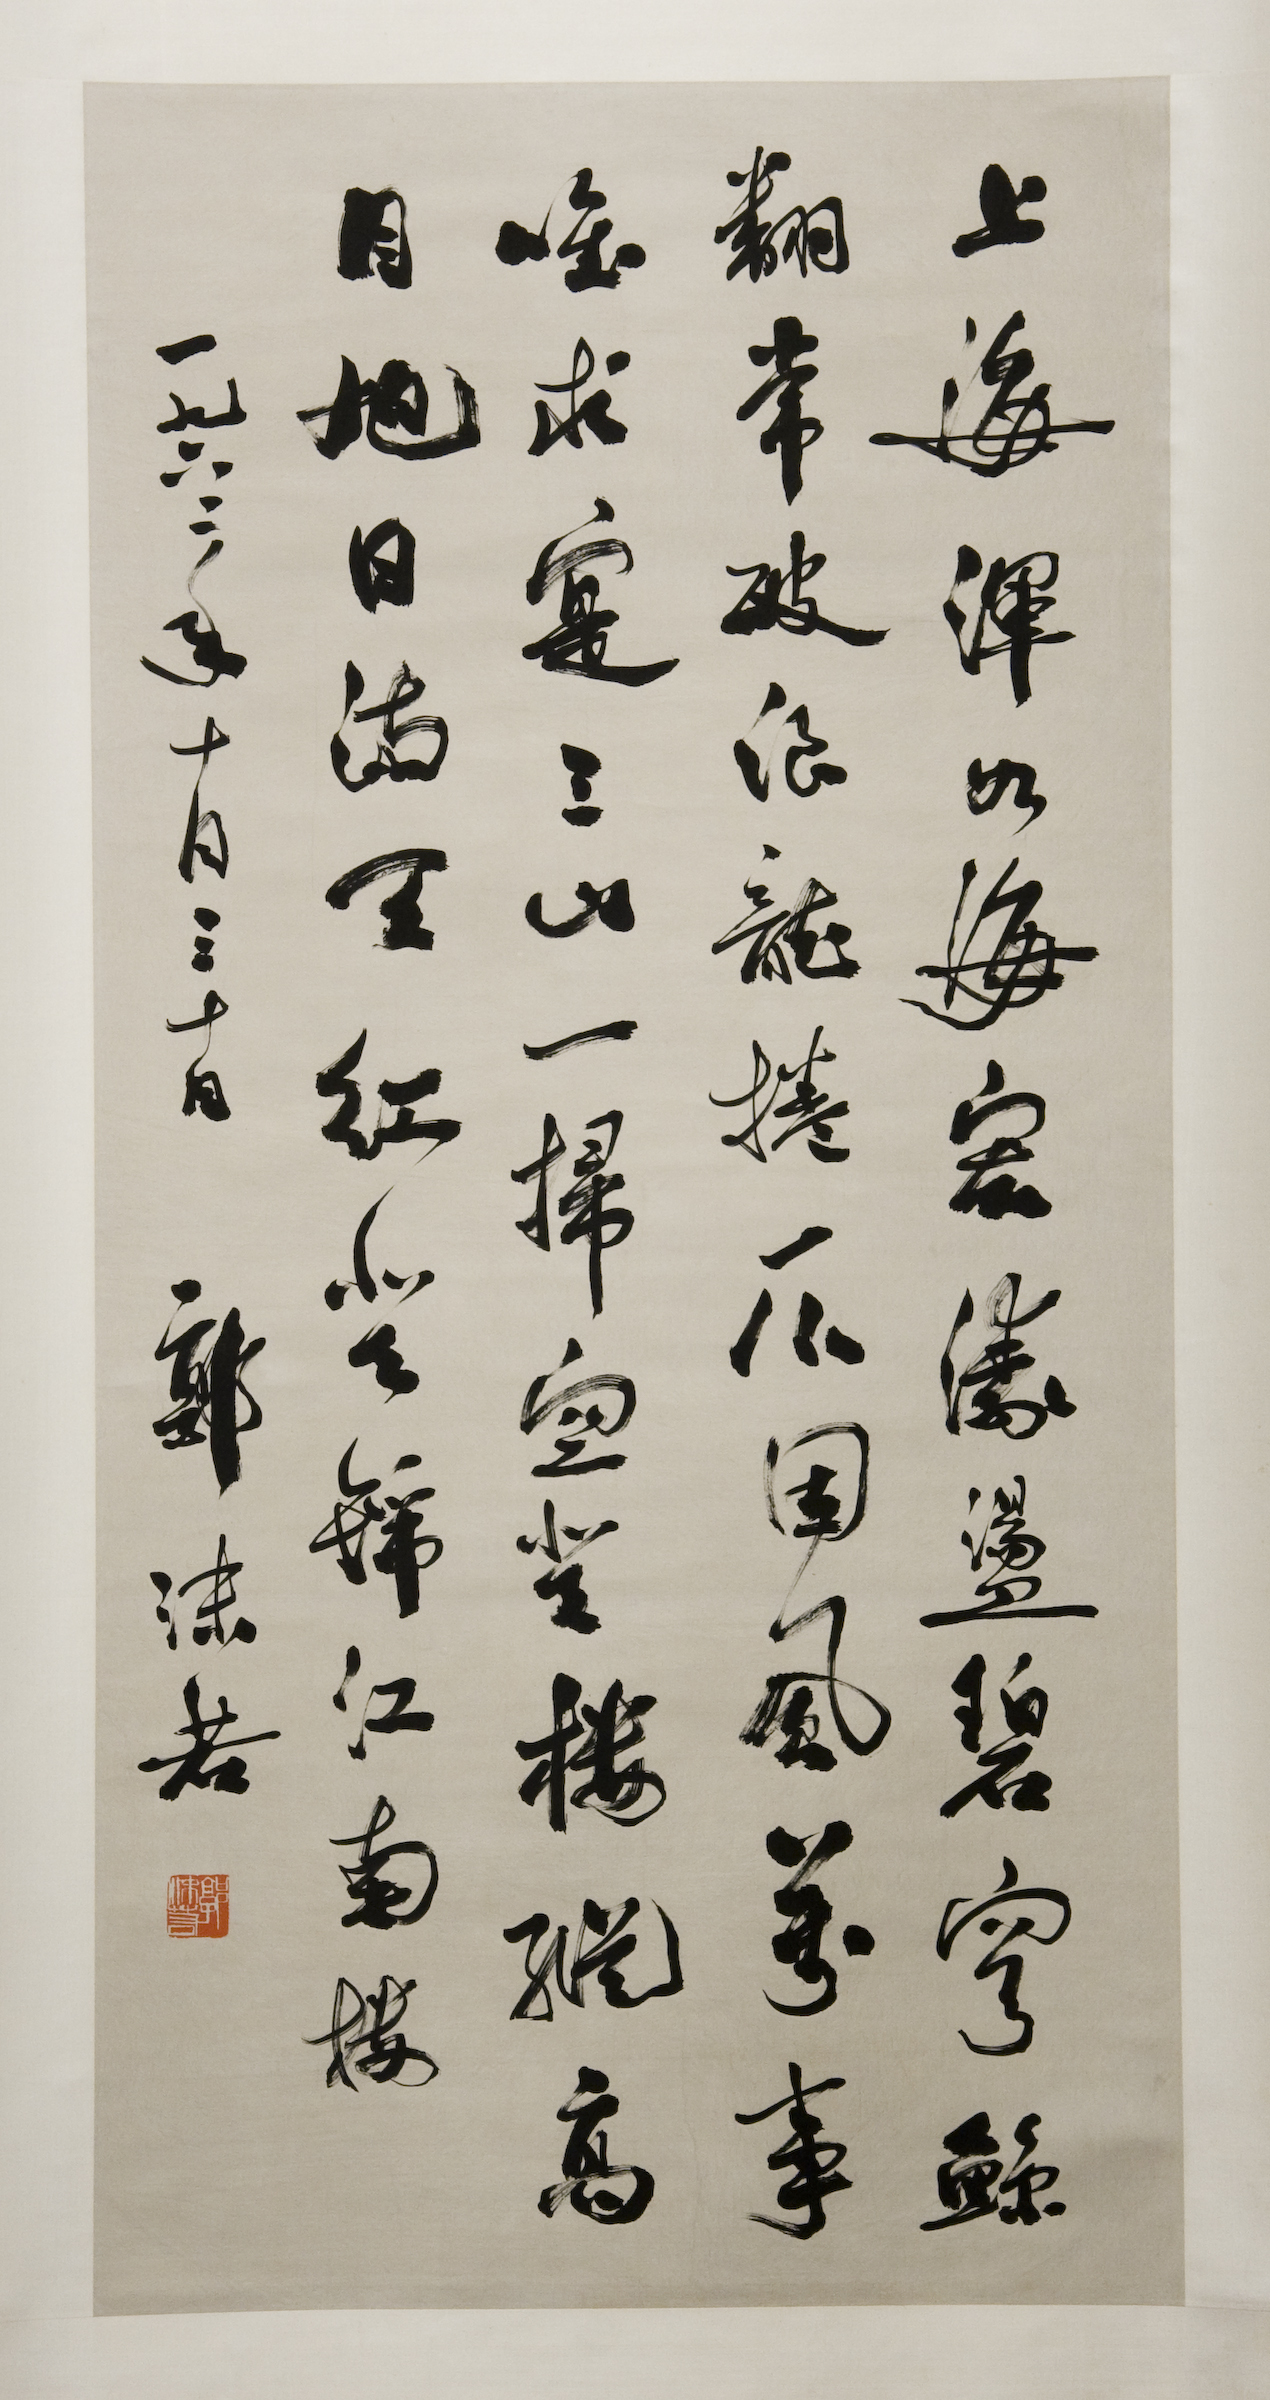 上海渾如海宏濤盪碧穹鯨
翻常破浪龍捲不周風萬事
唯求寔三山一掃空登樓縱高
目旭日滿天紅登錦江南樓
一九六二年十月三十日 郭沫若
郭沫若